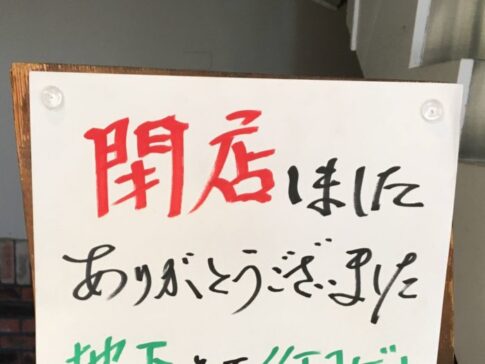 閉店しました
ありがとうございました
地下